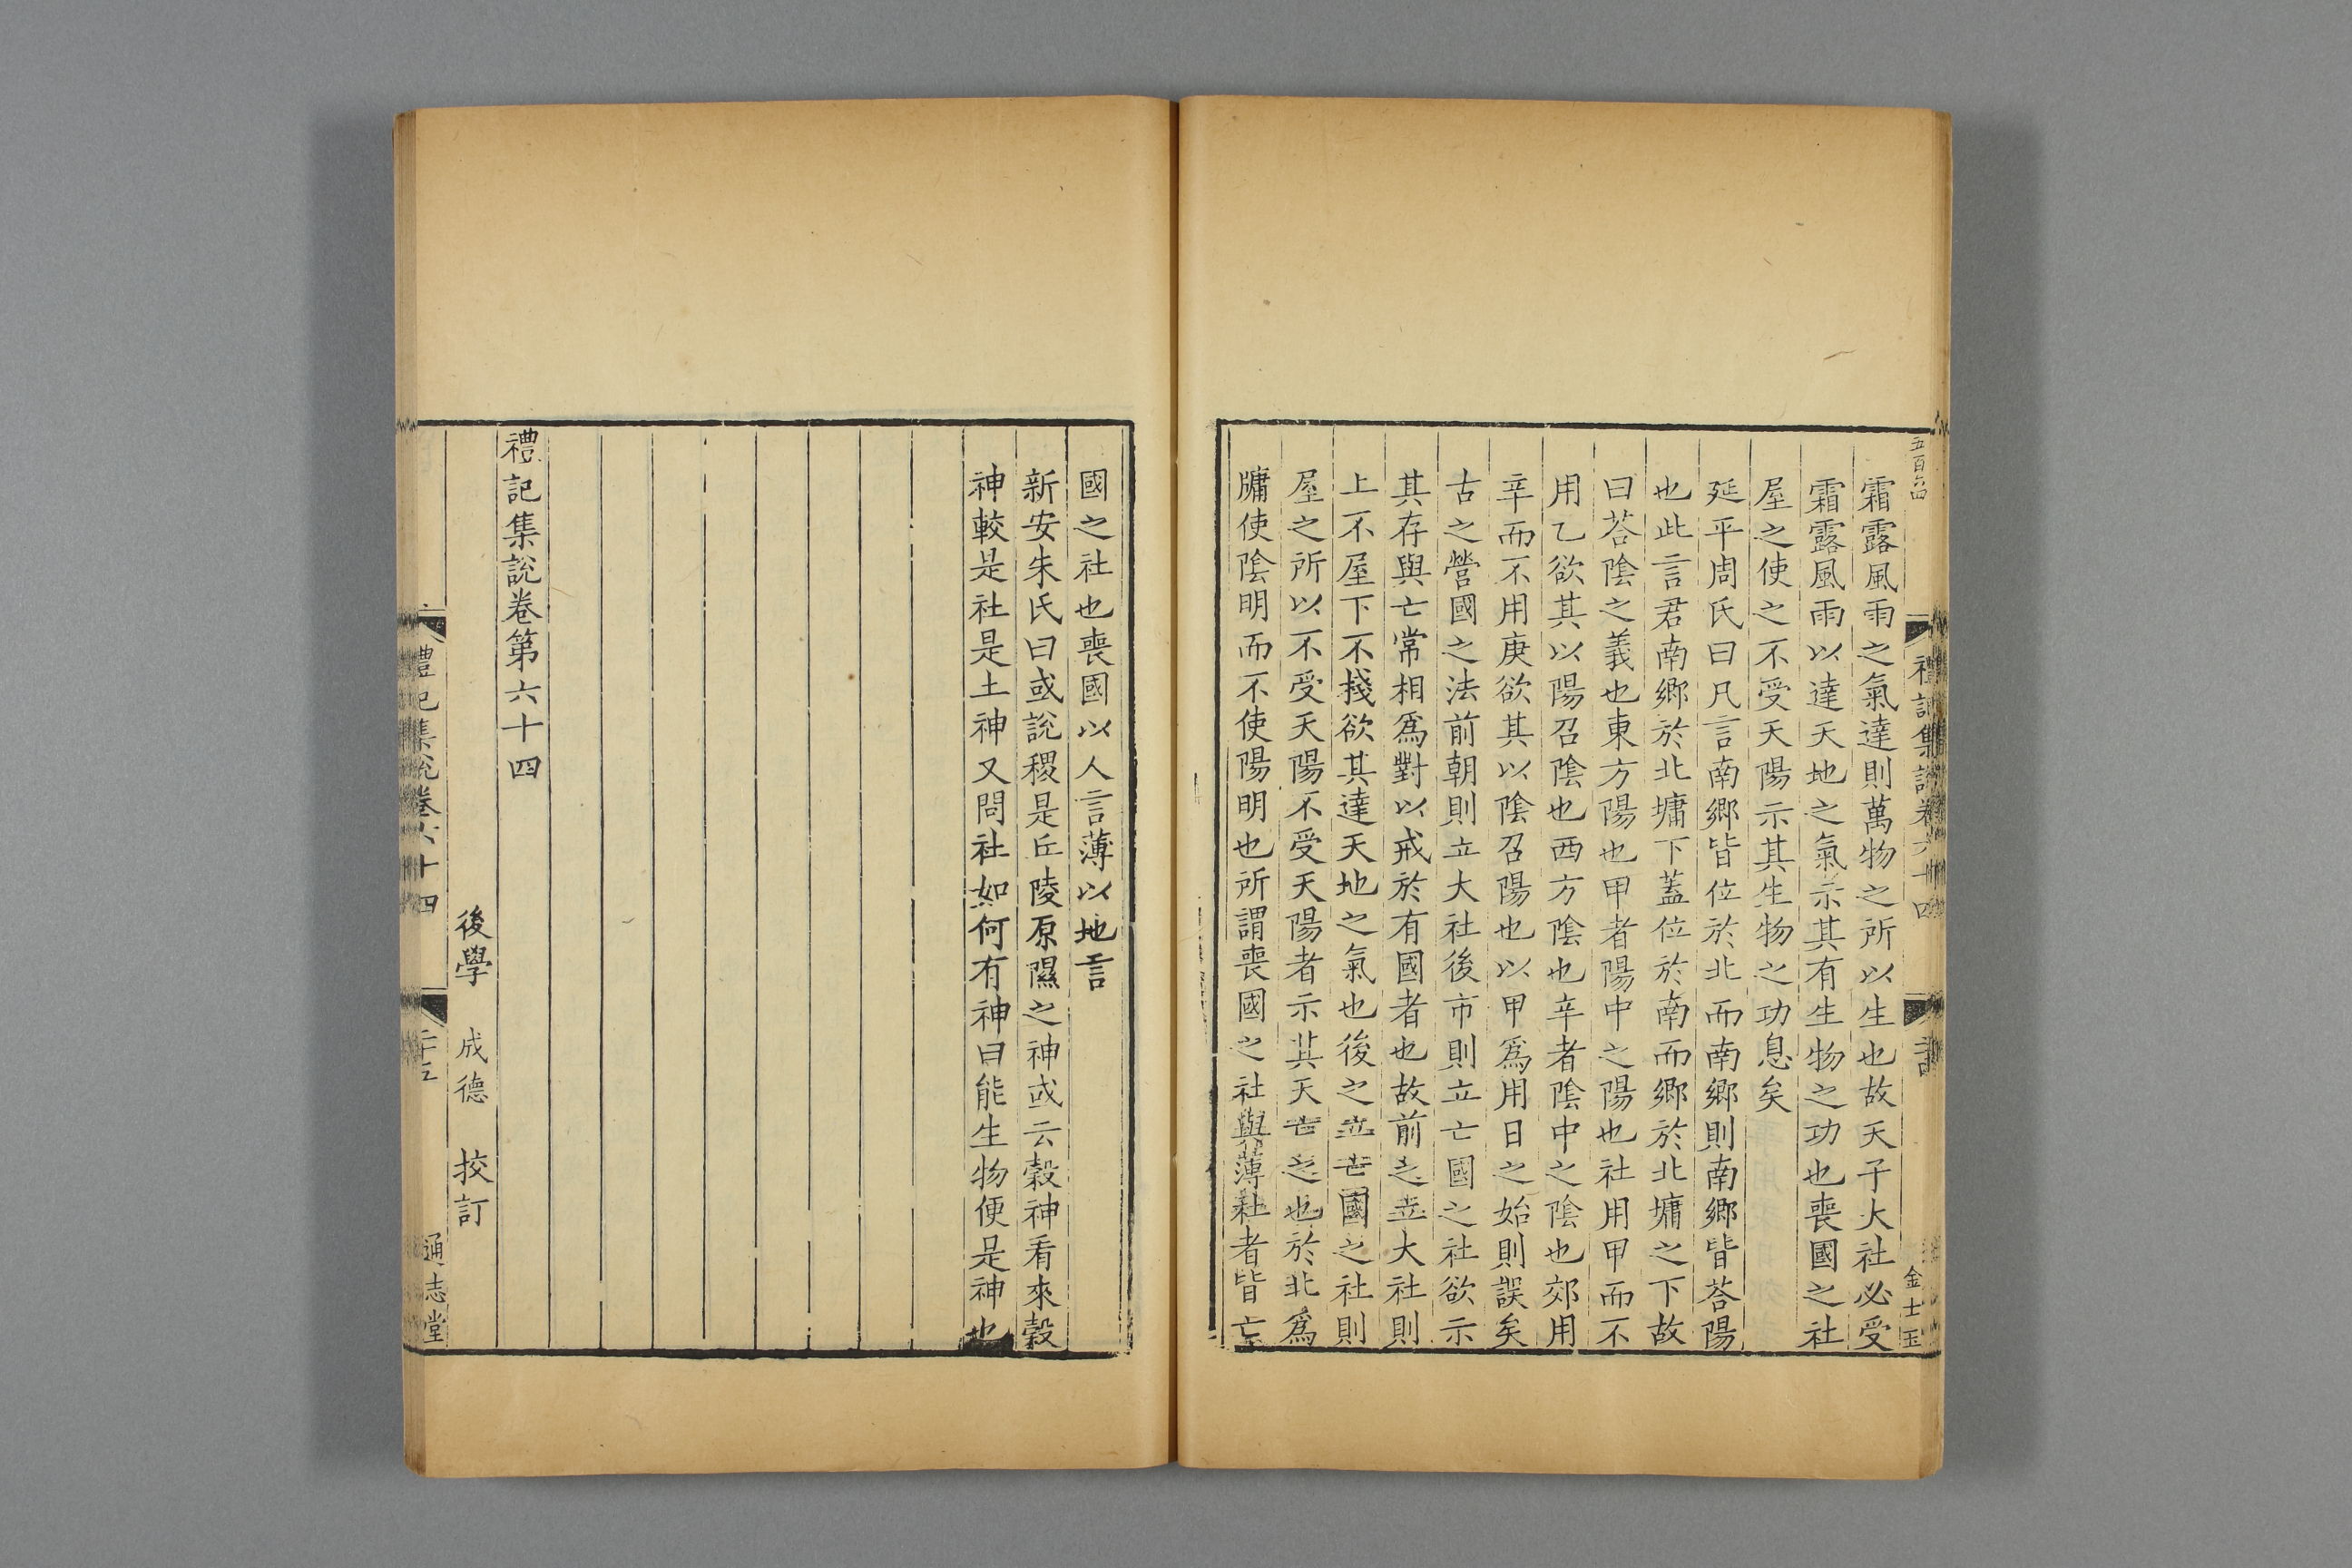 五百六四
禮記集說卷六十四
金士玉
霜露風雨之氣達則萬物之所以生也故天子大社必受
霜露風雨以達天地之氣示其有生物之功也喪國之社
屋之使之不受天陽示其生物之功息矣
延平周氏曰凡言南鄉皆位於北而南鄉則南鄉皆荅陽
也此言君南鄉於北墉下蓋位於南而鄉於北墉之下故
曰荅陰之義也東方陽也甲者陽中之陽也社用甲而不
用乙欲其以陽召陰也西方陰也辛者陰中之陰也郊用
辛而不用庚欲其以陰召陽也以甲爲用日之始則誤矣
古之營國之法前朝則立大社後市則立亡國之社欲示
其存與亡常相爲對以戒於有國者也故前之立大社則
上不屋下不棧欲其達天地之氣也後之立亡國之社則
屋之所以不受天陽不受天陽者示其天亡之也於北爲
牖使陰明而不使陽明也所謂喪國之社與薄社者皆亡
國之社也喪國以人言薄以地言
新安朱氏曰或說稷是丘陵原隰之神或云穀神看來穀
神較是社是土神又問社如何有神曰能生物便是神也
禮記集說卷第六十四
後學 成德 挍訂
禮記集說卷六十四
二十五
通志堂